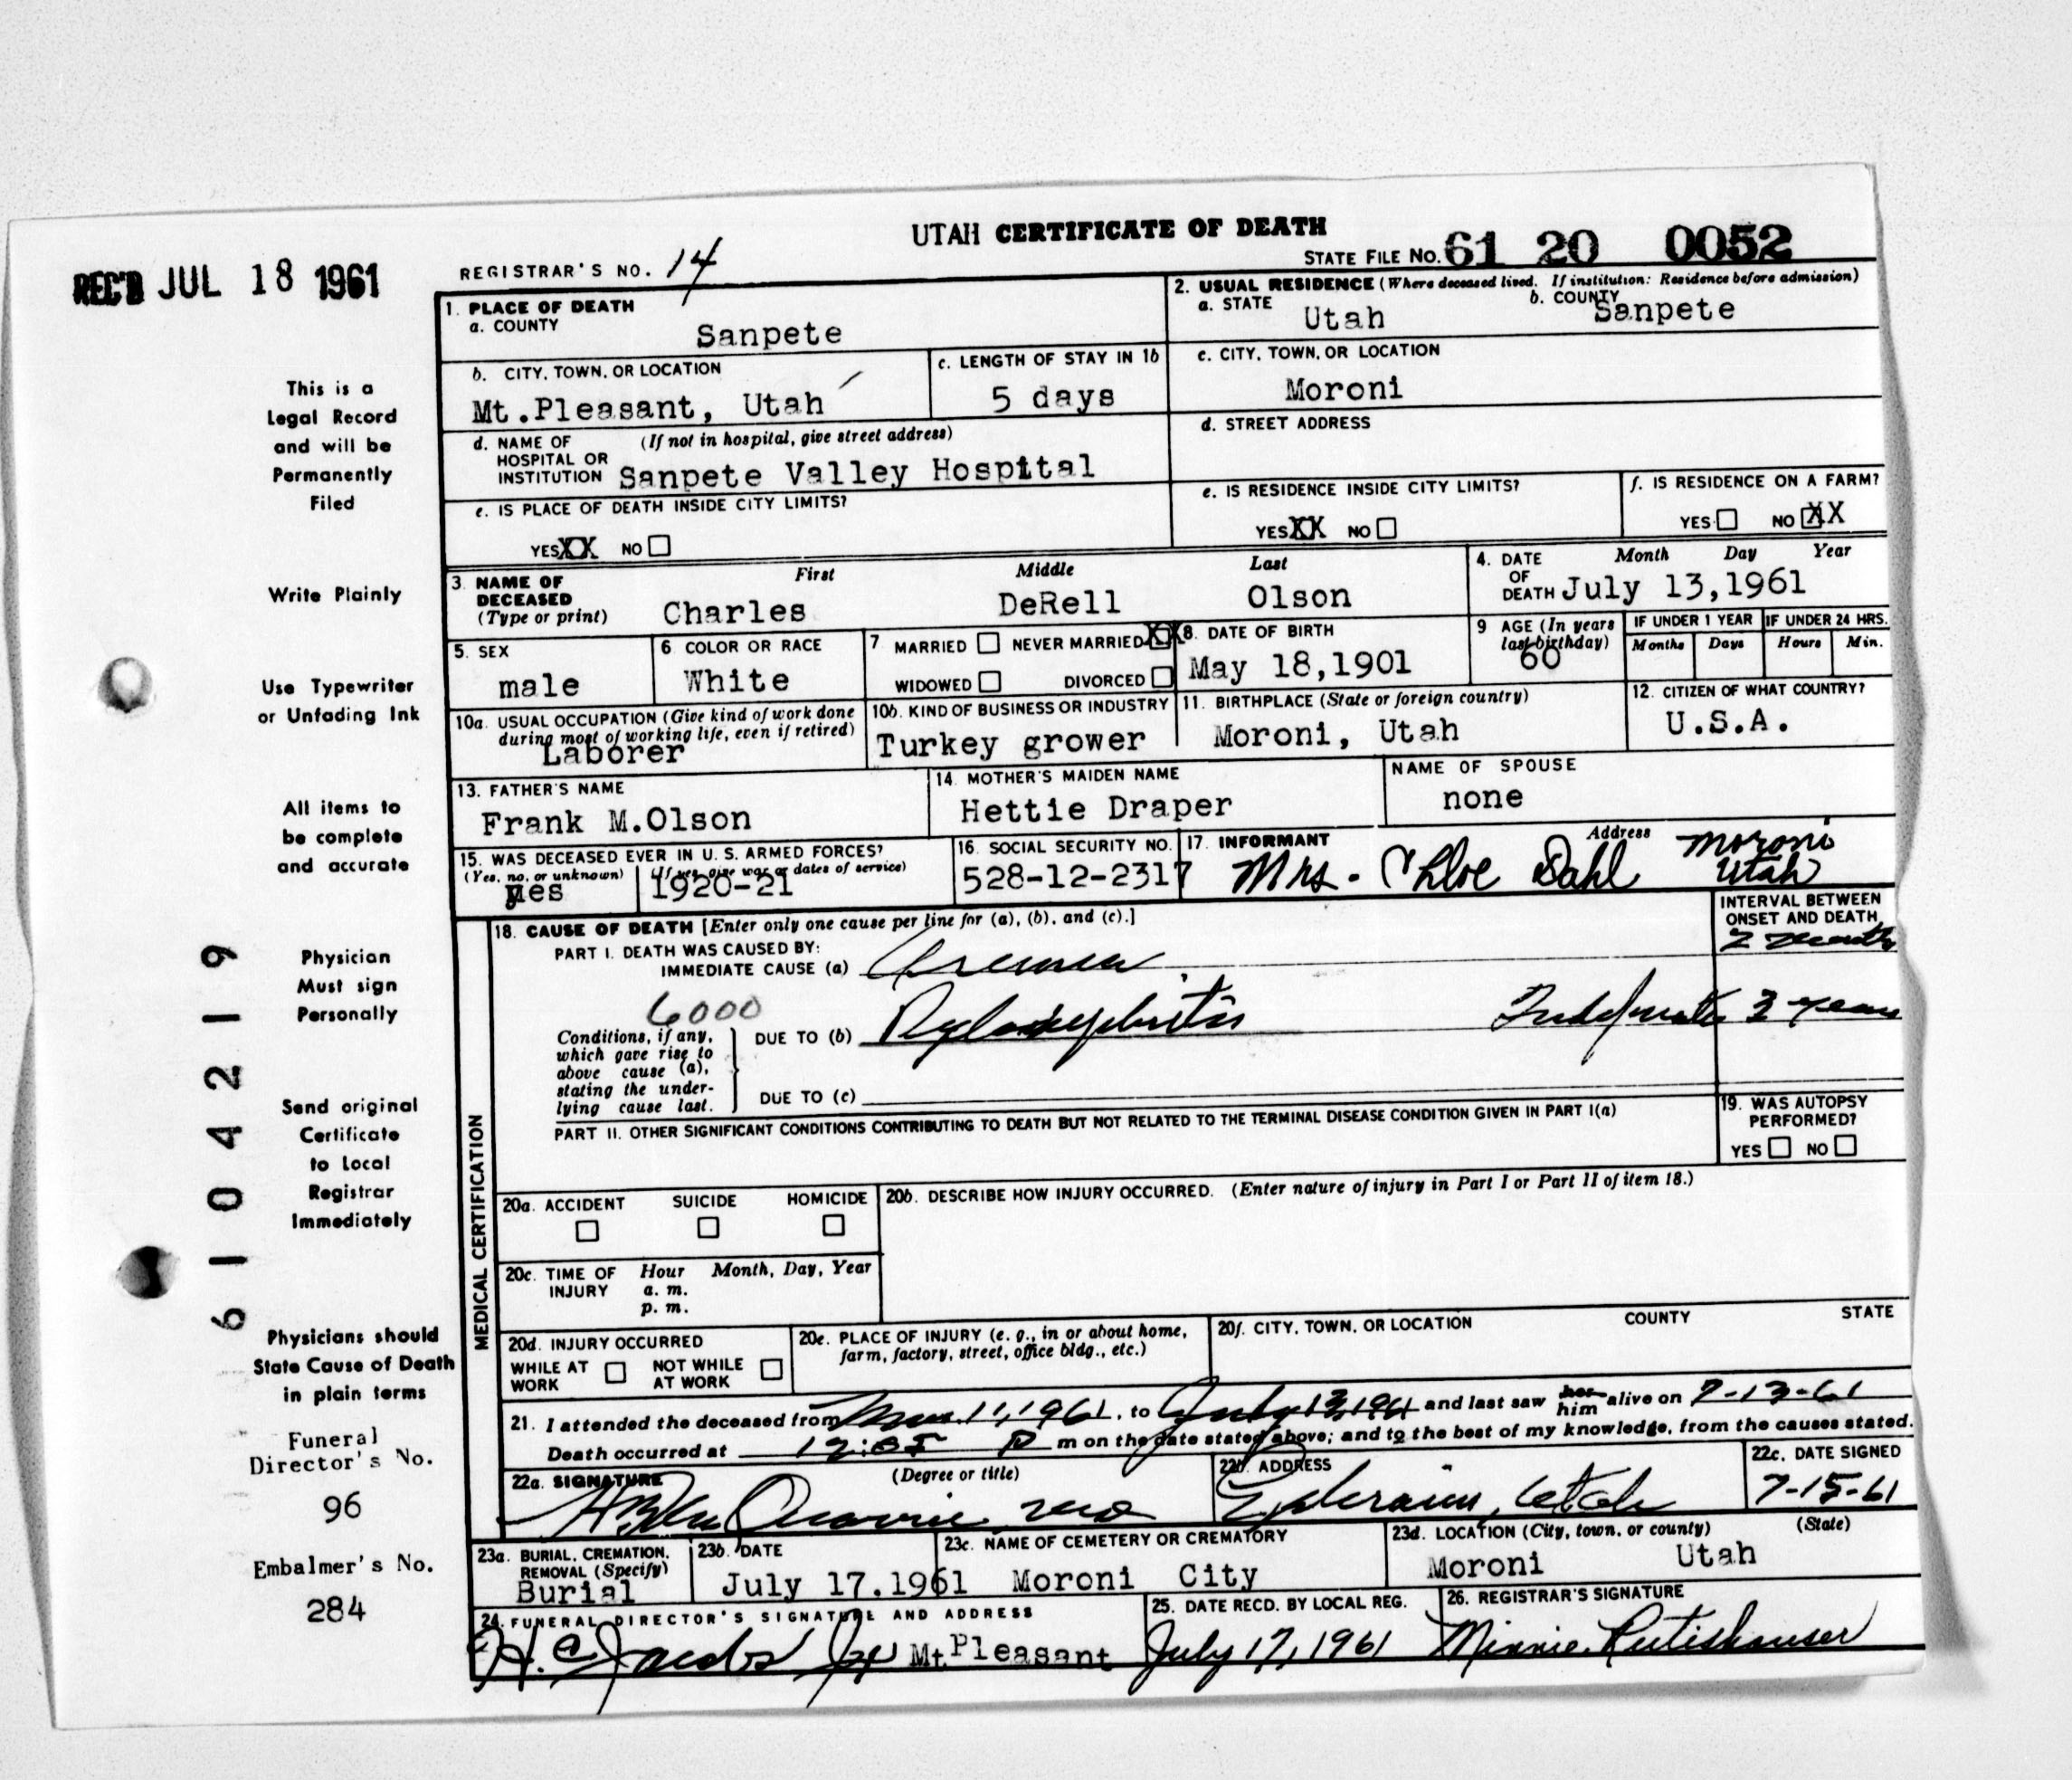 UTAH CERTIFICATE OF DEATH
STATE FILE NO. 61 20 0052
REC'D JUL 18 1961
REGISTRAR'S NO. 14
1. PLACE OF DEATH
a. COUNTY
Sanpete
2. USUAL RESIDENCE (Where deceased lived. If institution: Residence before admission)
a. STATE
Utah
b. COUNTY
Sanpete
b. CITY, TOWN, OR LOCATION
Mt.Pleasant, Utah
c. LENGTH OF STAY IN 1b
5 days
c. CITY, TOWN, OR LOCATION
Moroni
d. NAME OF (If not in hospital, give street address)
HOSPITAL OR
INSTITUTION Sanpete Valley Hospital
d. STREET ADDRESS
e. IS PLACE OF DEATH INSIDE CITY LIMITS?
YES XX NO
e. IS RESIDENCE INSIDE CITY LIMITS?
YES XX NO
f. IS RESIDENCE ON A FARM?
YES NO XX
3. NAME OF
DECEASED
(Type or print)
First Middle Last
Charles DeRell Olson
4. DATE Month Day Year
OF
DEATH July 13,1961
5. SEX
male
6. COLOR OR RACE
White
7 MARRIED NEVER MARRIED XX
WIDOWED DIVORCED
8. DATE OF BIRTH
May 18,1901
9 AGE (In years
last birthday)
60
IF UNDER 1 YEAR
Months Days
IF UNDER 24 HRS.
Hours Min.
10a. USUAL OCCUPATION (Give kind of work done
during most of working life, even if retired)
Laborer
10b. KIND OF BUSINESS OR INDUSTRY
Turkey grower
11. BIRTHPLACE (State or foreign country)
Moroni, Utah
12. CITIZEN OF WHAT COUNTRY?
U.S.A.
13. FATHER'S NAME
Frank M.Olson
14. MOTHER'S MAIDEN NAME
Hettie Draper
NAME OF SPOUSE
none
15. WAS DECEASED EVER IN U. S. ARMED FORCES?
(Yes, no, or unknown) (If yes, give war or dates of service)
yes 1920-21
16. SOCIAL SECURITY NO.
528-12-2317
17. INFORMANT Address
Mrs. Chloe Dahl Moroni
Utah
MEDICAL CERTIFICATION
18. CAUSE OF DEATH [Enter only one cause per line for (a), (b), and (c).]
INTERVAL BETWEEN
ONSET AND DEATH
PART I. DEATH WAS CAUSED BY:
IMMEDIATE CAUSE (a) Uremia 2 months
6000
DUE TO (b) Pyelonephritis 3 years
Conditions, if any,
which gave rise to
above cause (a),
stating the under-
lying cause last.
DUE TO (c)
PART II. OTHER SIGNIFICANT CONDITIONS CONTRIBUTING TO DEATH BUT NOT RELATED TO THE TERMINAL DISEASE CONDITION GIVEN IN PART I(a)
19. WAS AUTOPSY
PERFORMED?
YES NO
20a. ACCIDENT SUICIDE HOMICIDE
20b. DESCRIBE HOW INJURY OCCURRED. (Enter nature of injury in Part I or Part II of item 18.)
20c. TIME OF Hour Month, Day, Year
INJURY a. m.
p. m.
20d. INJURY OCCURRED
WHILE AT WORK NOT WHILE AT WORK
20e. PLACE OF INJURY (e. g., in or about home,
farm, factory, street, office bldg., etc.)
20f. CITY, TOWN, OR LOCATION COUNTY STATE
21. I attended the deceased from 11, 1961, to July 13, 1961 and last saw her him alive on 7-13-61
Death occurred at 12:05 P m on the date stated above; and to the best of my knowledge, from the causes stated.
22a. SIGNATURE (Degree or title)
22b. ADDRESS
Ephraim, Utah
22c. DATE SIGNED
7-15-61
23a. BURIAL, CREMATION,
REMOVAL (Specify)
Burial
23b. DATE
July 17.1961
23c. NAME OF CEMETERY OR CREMATORY
Moroni City
23d. LOCATION (City, town, or county) (State)
Moroni Utah
24. FUNERAL DIRECTOR'S SIGNATURE AND ADDRESS
H. C. Jacobs Jr Mt Pleasant
25. DATE RECD. BY LOCAL REG.
July 17, 1961
26. REGISTRAR'S SIGNATURE
Minnie Rutishauser
This is a
Legal Record
and will be
Permanently
Filed
Write Plainly
Use Typewriter
or Unfading Ink
All items to
be complete
and accurate
Physician
Must sign
Personally
Send original
Certificate
to Local
Registrar
Immediately
Physicians should
State Cause of Death
in plain terms
Funeral
Director's No.
96
Embalmer's No.
284
6104219